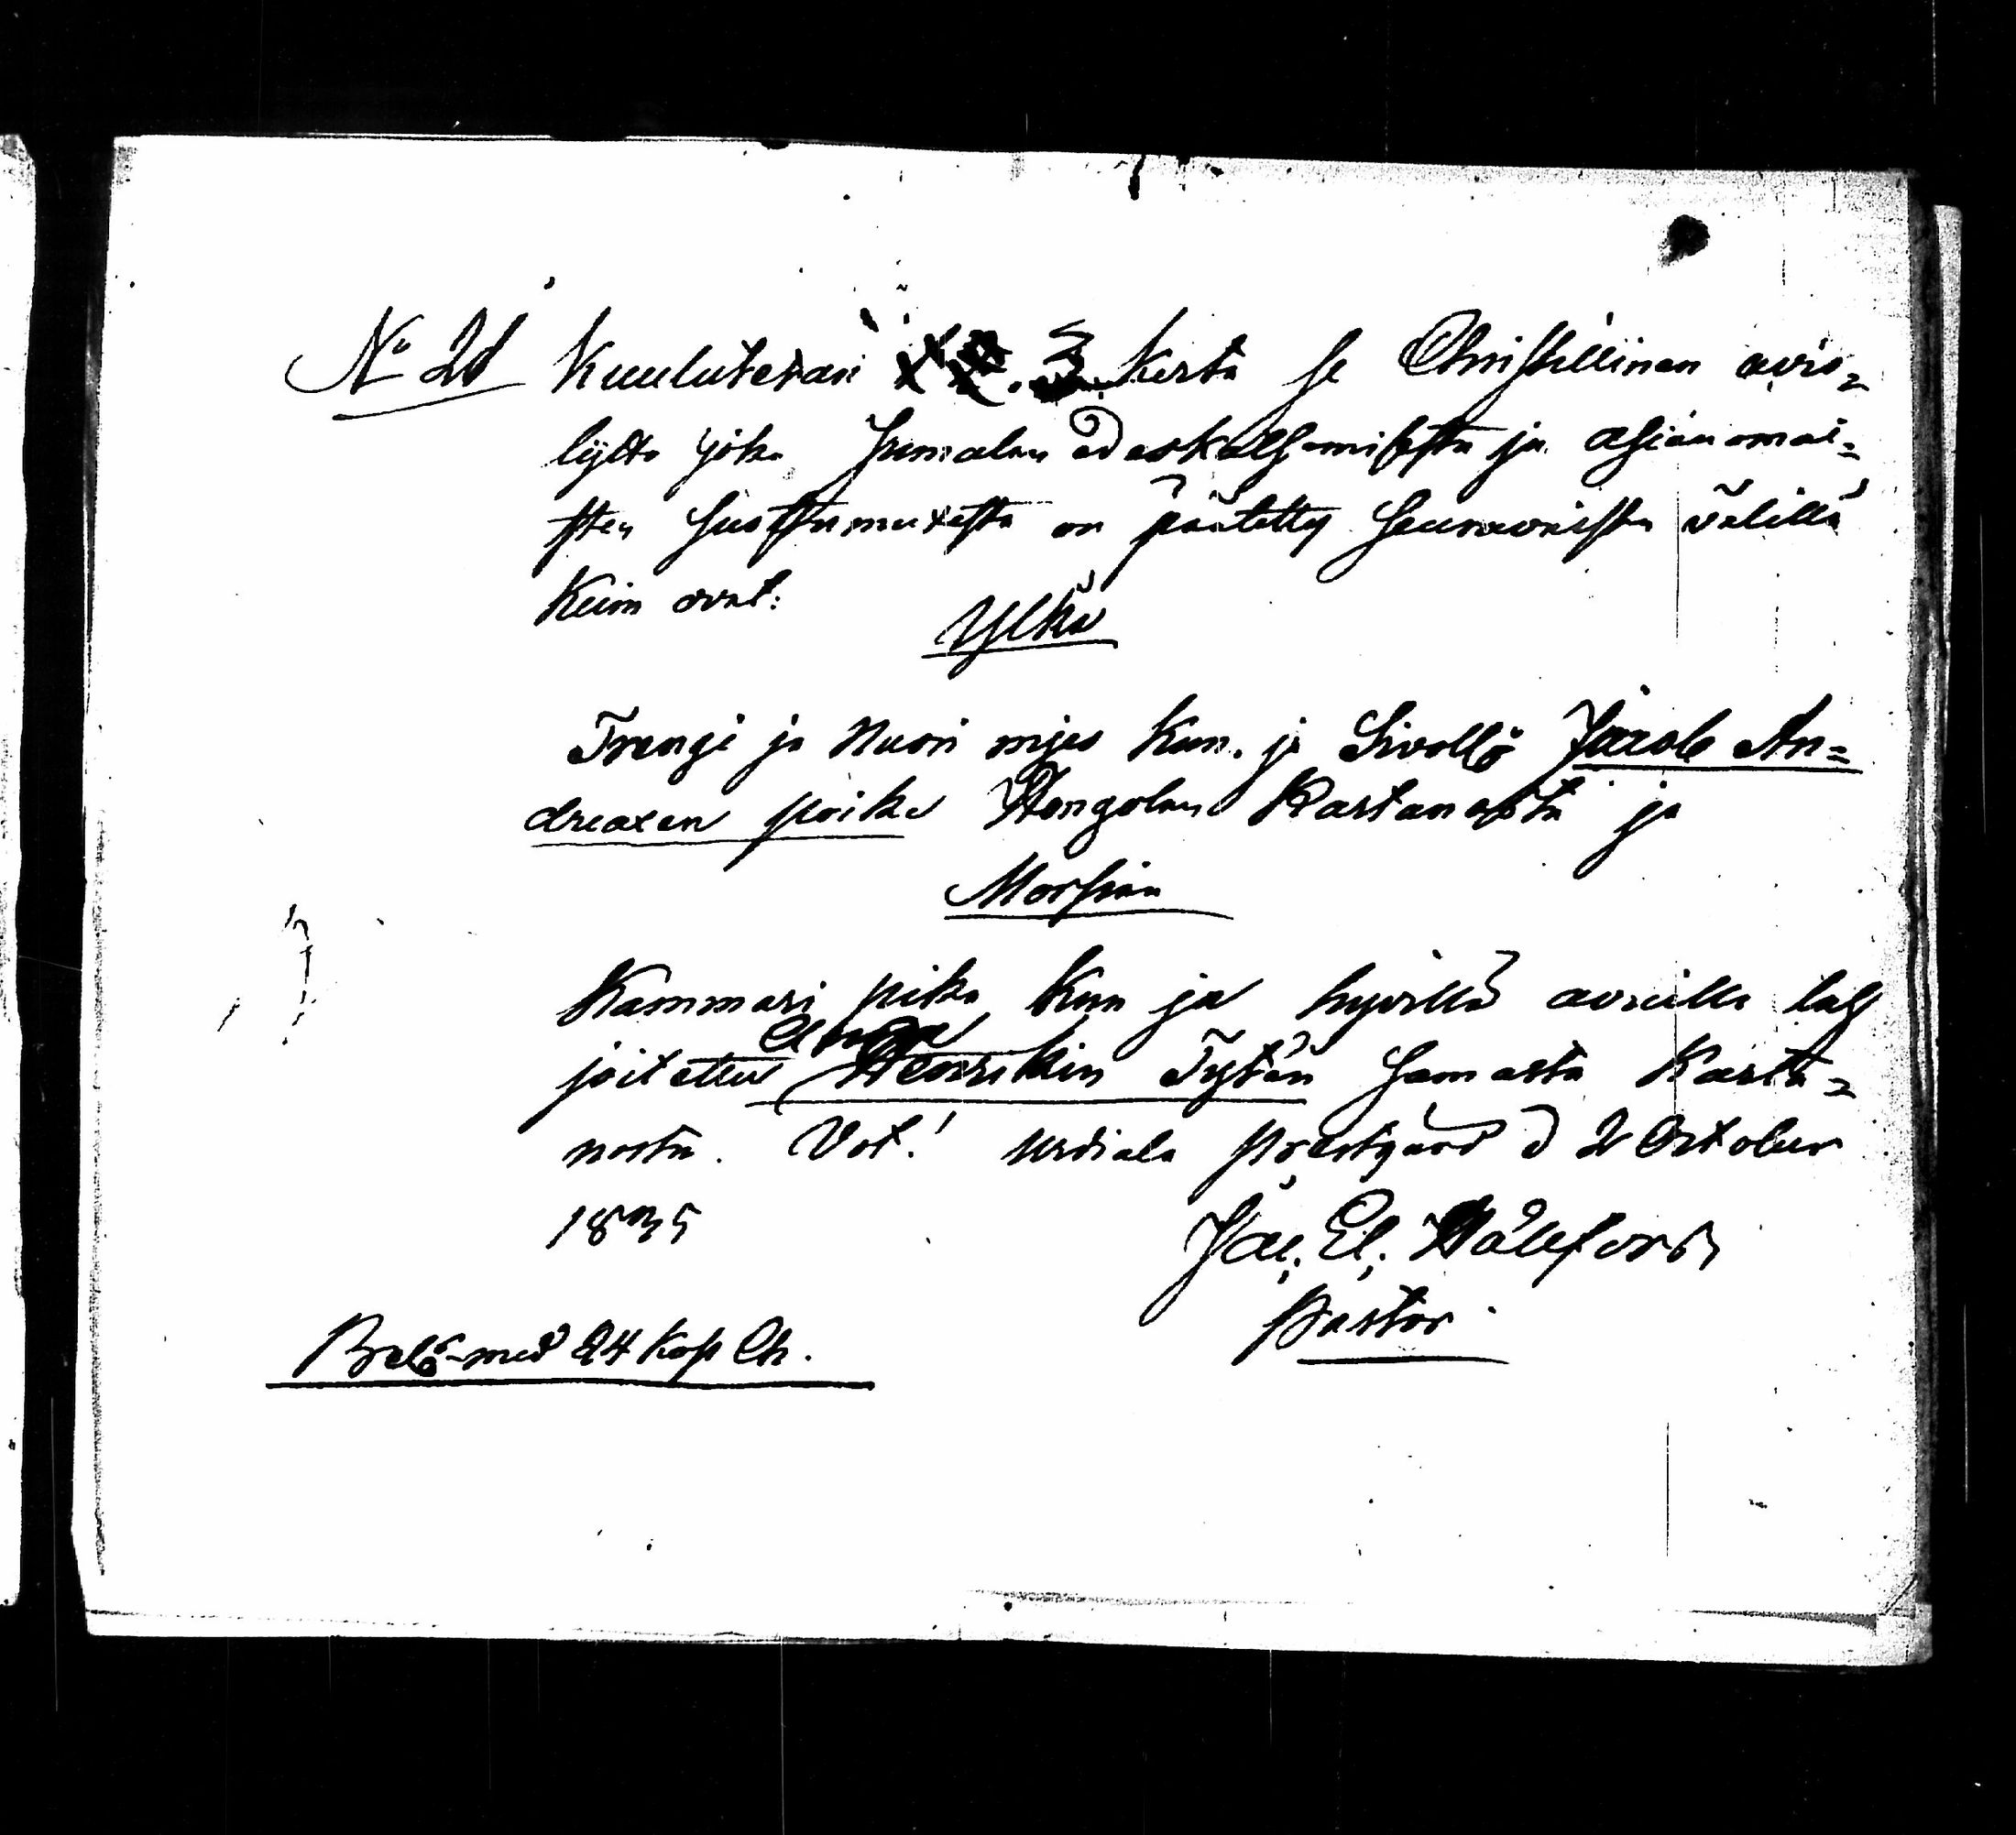 No 21 Kuulutetan 3 kerta se Christillinen avio=
lijtto joka Jumalan edeskatsomisesta ja asianomai=
sten suostumuxesta on päätetty seuravaisten välillä
kuin ovat:
Ylkä
Trengi ja nuori mjes kun. ja Sivollö Jacob An=
dreaxen poika Hongolan Kartanosta ja
Morsian
Kammari pika kun ja hyvillä avuilla lah
joitettu Anna Henrikin Tytän samasta Karta=
nosta. Vot! Urdiala prestgård d 2 October
1835
Jac. El. Wållfors
Pastor
Belö med 24 Kop Ch.